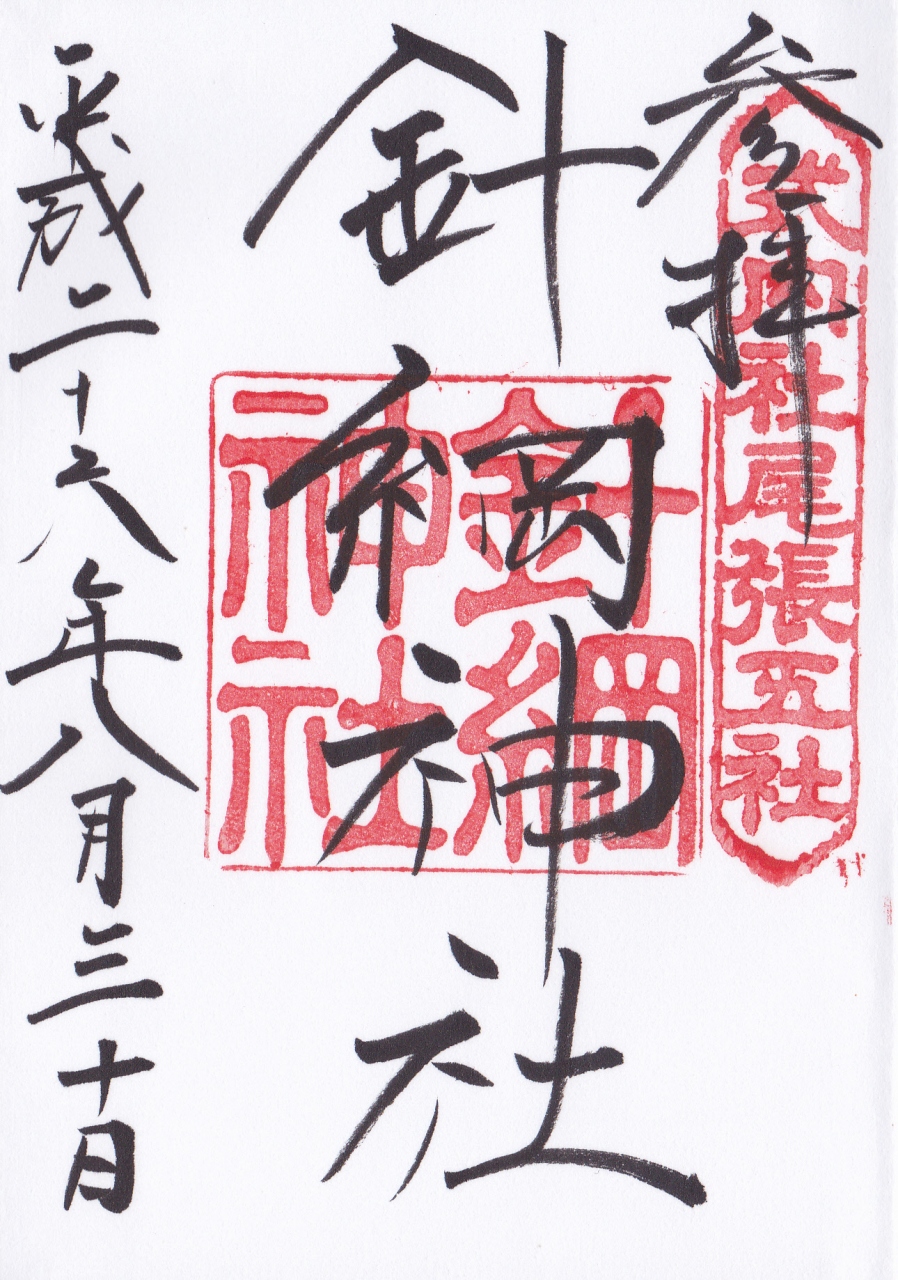 参拝
式内社尾張五社
針綱神社
針綱神社
平成二十六年八月三十日